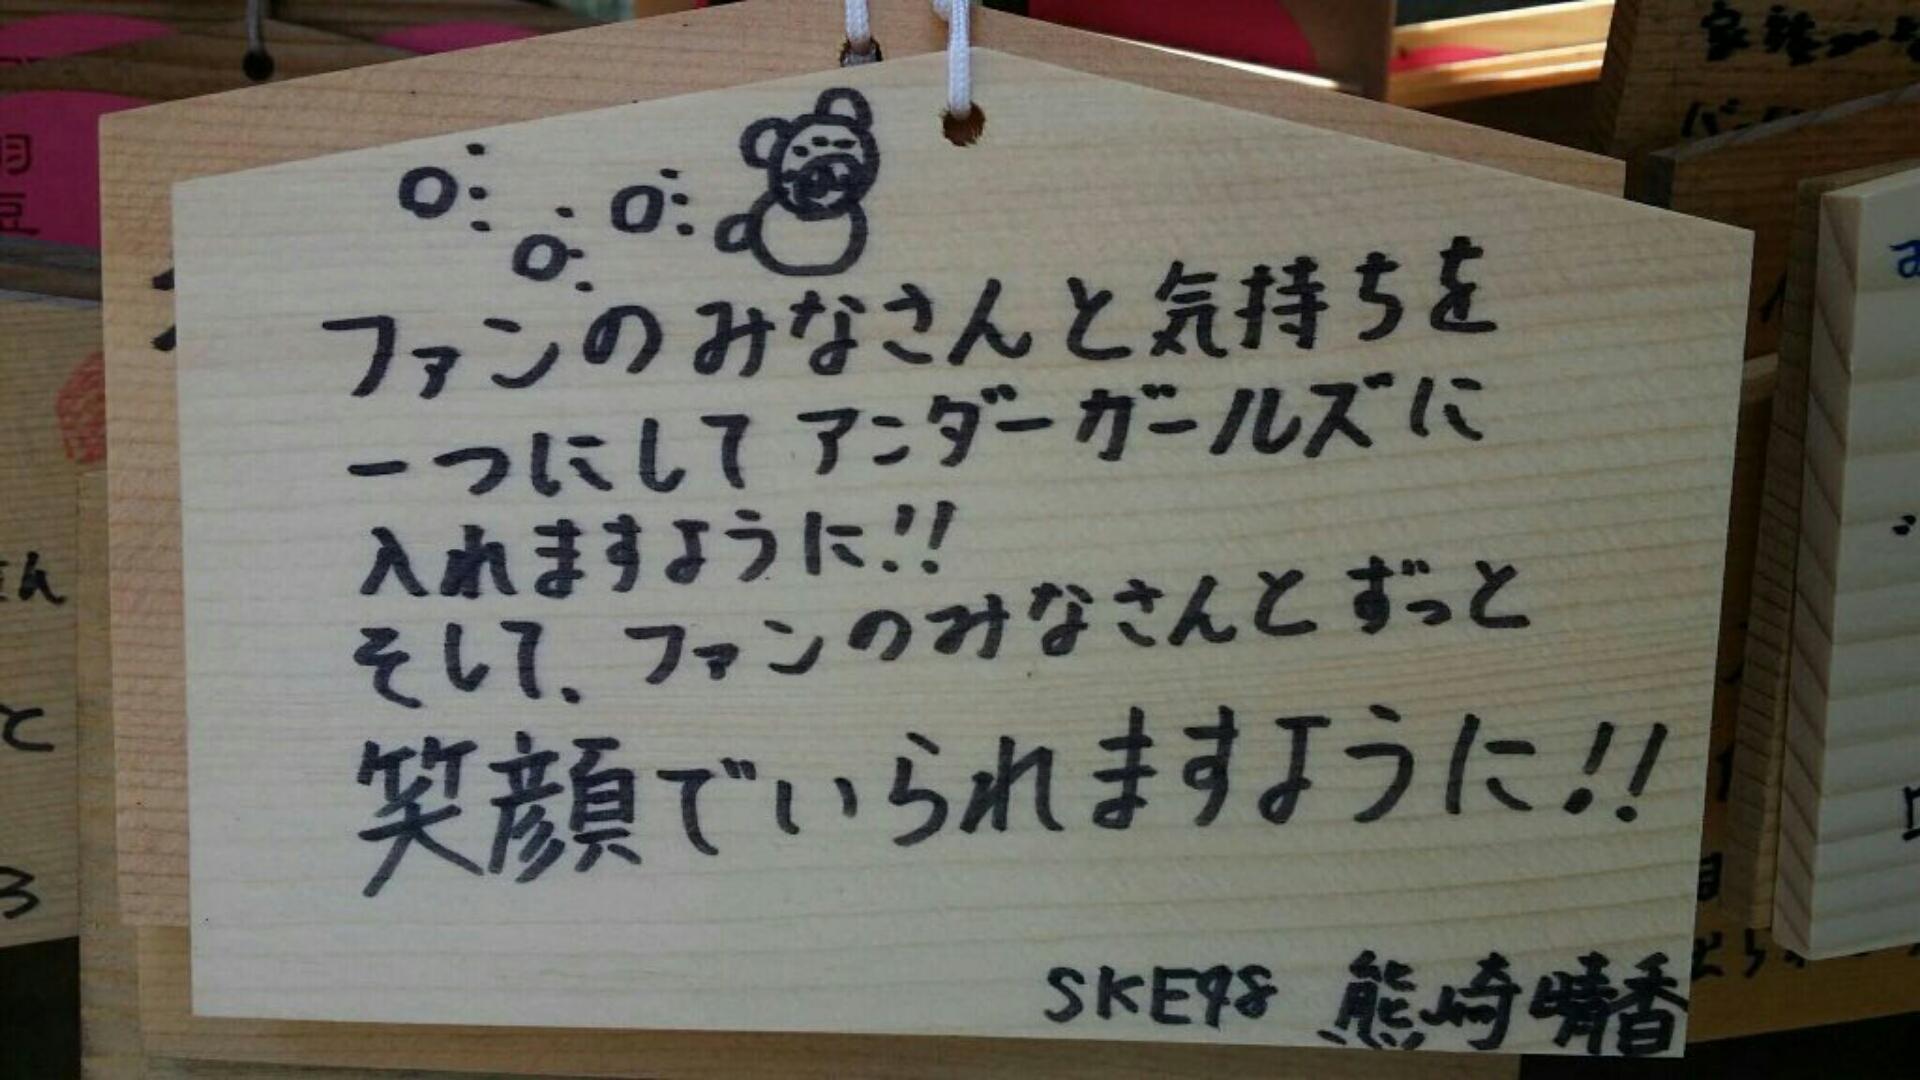 ファンのみなさんと気持ちを
一つにしてアンダーガールズに
入れますように!!
そして、ファンのみなさんとずっと
笑顔でいられますように!!
SKE48 熊崎晴香